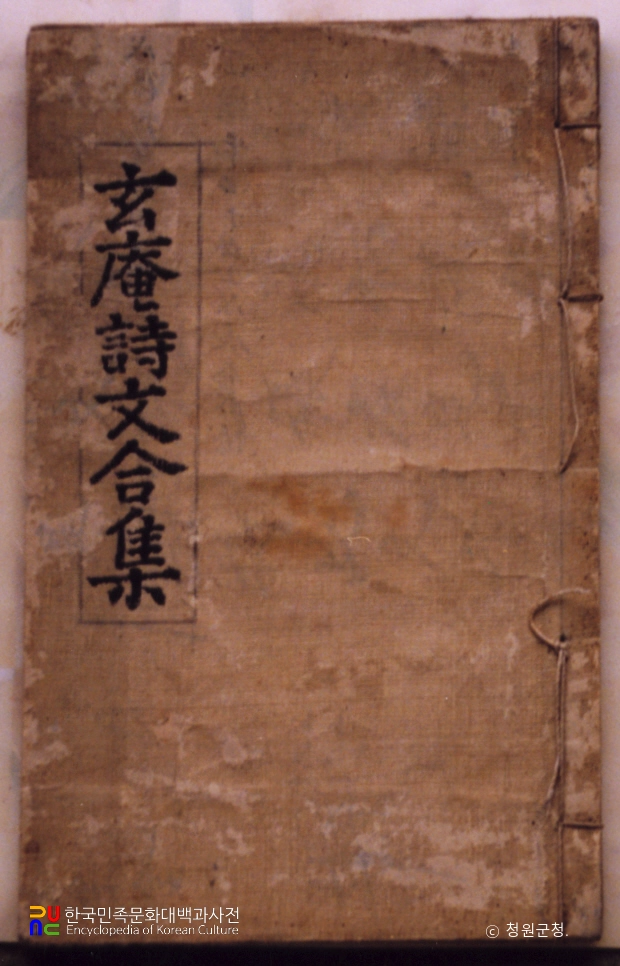 玄庵詩文合集
한국민족문화대백과사전
Encyclopedia of Korean Culture
© 청원군청.